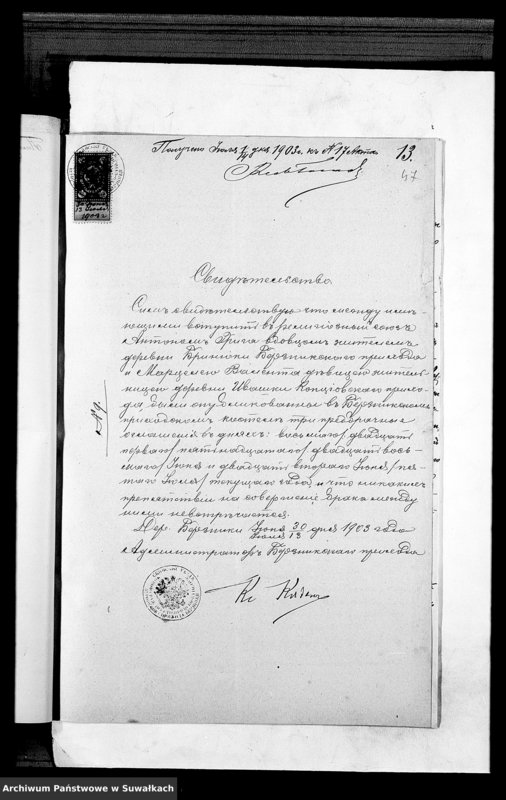 Получено Іюля 1/14 дня 1903 г. къ № 17 Акта
13.
47
13 Іюля
1903 г
№ 9.
Свидѣтельство.
Симъ свидѣтельствую что между имѣ-
ющими вступить въ религіозный союзъ
Антономъ Грига вдовцемъ жителемъ
деревни Бржиоки Березникскаго прихода
и Марцелею Валента дѣвицею житель-
ницею деревни Ивашки Концiовскаго прихо-
да были опубликованы въ Березникскомъ
приходскомъ костелѣ три предбрачныя
оглашенія въ дняхъ: восьмаго/двадцать
перваго пятнадцатаго/двадцать вось-
маго Іюня и двадцать втораго Іюня/пя-
таго Іюля текущаго года, и что никакихъ
препятствій на совершеніе брака между
ними невстрѣчается.
Дер. Березники Іюня 30 дня 1903 года
Іюля 13
Администраторъ Березникскаго прихода
Кс
Archiwum Państwowe w Suwałkach